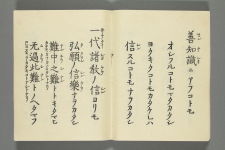 善知識ニアフコトモ
オシフルコトモマタカタシ
ヨクキクコトモカタケレハ
信スルコトモナヲカタシ
一代諸教ノ信ヨリモ
弘願ノ信樂ナヲカタシ
難中之難トトキタマヒ
无過此難トノヘタマフ